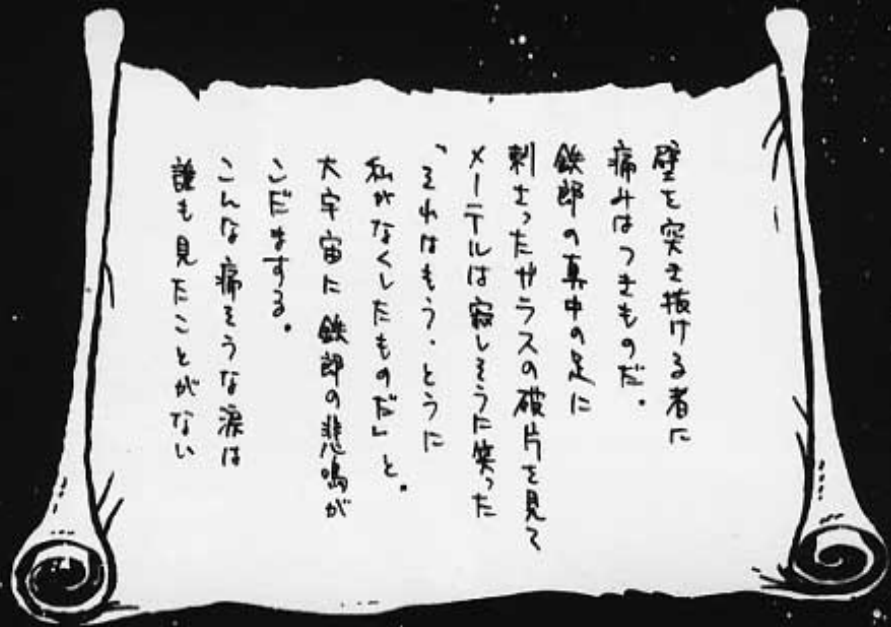 壁を突き抜ける者に
痛みはつきものだ。
鉄郎の真中の足に
刺さったガラスの破片を見て
メーテルは寂しそうに笑った
「それはもう、とうに
私がなくしたものだ」と。
大宇宙に鉄郎の悲鳴が
こだまする。
こんな痛そうな涙は
誰も見たことがない